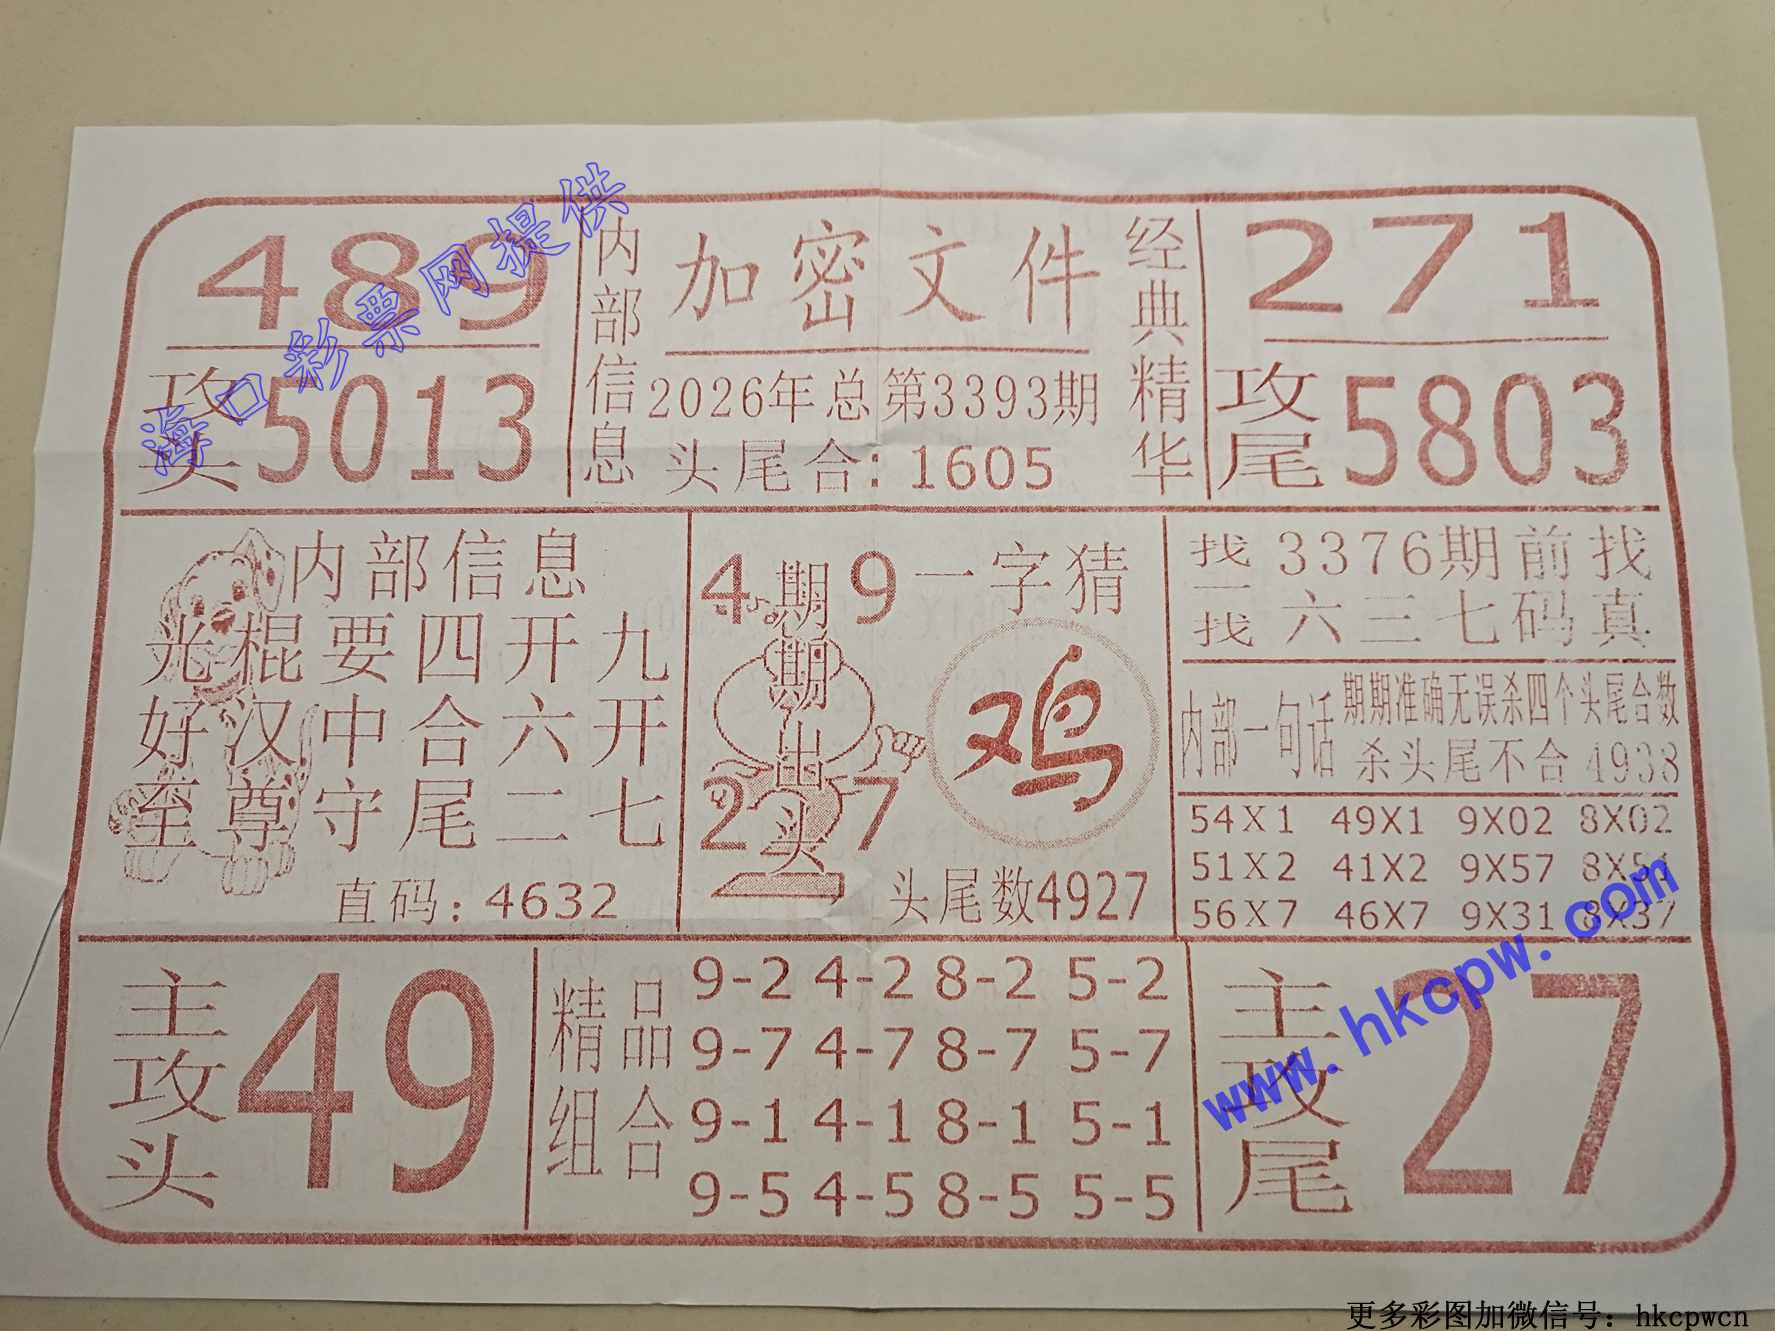 489
攻头5013
内部信息
加密文件
2026年总第3393期
头尾合：1605
经典精华
271
攻尾5803
内部信息
光棍要四开九
好汉中合六开
至尊守尾二七
直码：4632
4 9
期期出头
2 7
一字猜
鸡
头尾数4927
找一找
3376期前找
六三七码真
内部一句话
期期准确无误杀四个头尾合数
杀头尾不合4938
54X1 49X1 9X02 8X02
51X2 41X2 9X57 8X51
56X7 46X7 9X31 8X37
主攻头
49
精品组合
9-2 4-2 8-2 5-2
9-7 4-7 8-7 5-7
9-1 4-1 8-1 5-1
9-5 4-5 8-5 5-5
主攻尾
27
海口彩票网提供
www.hkcpw.com
更多彩图加微信号：hkcpwcn